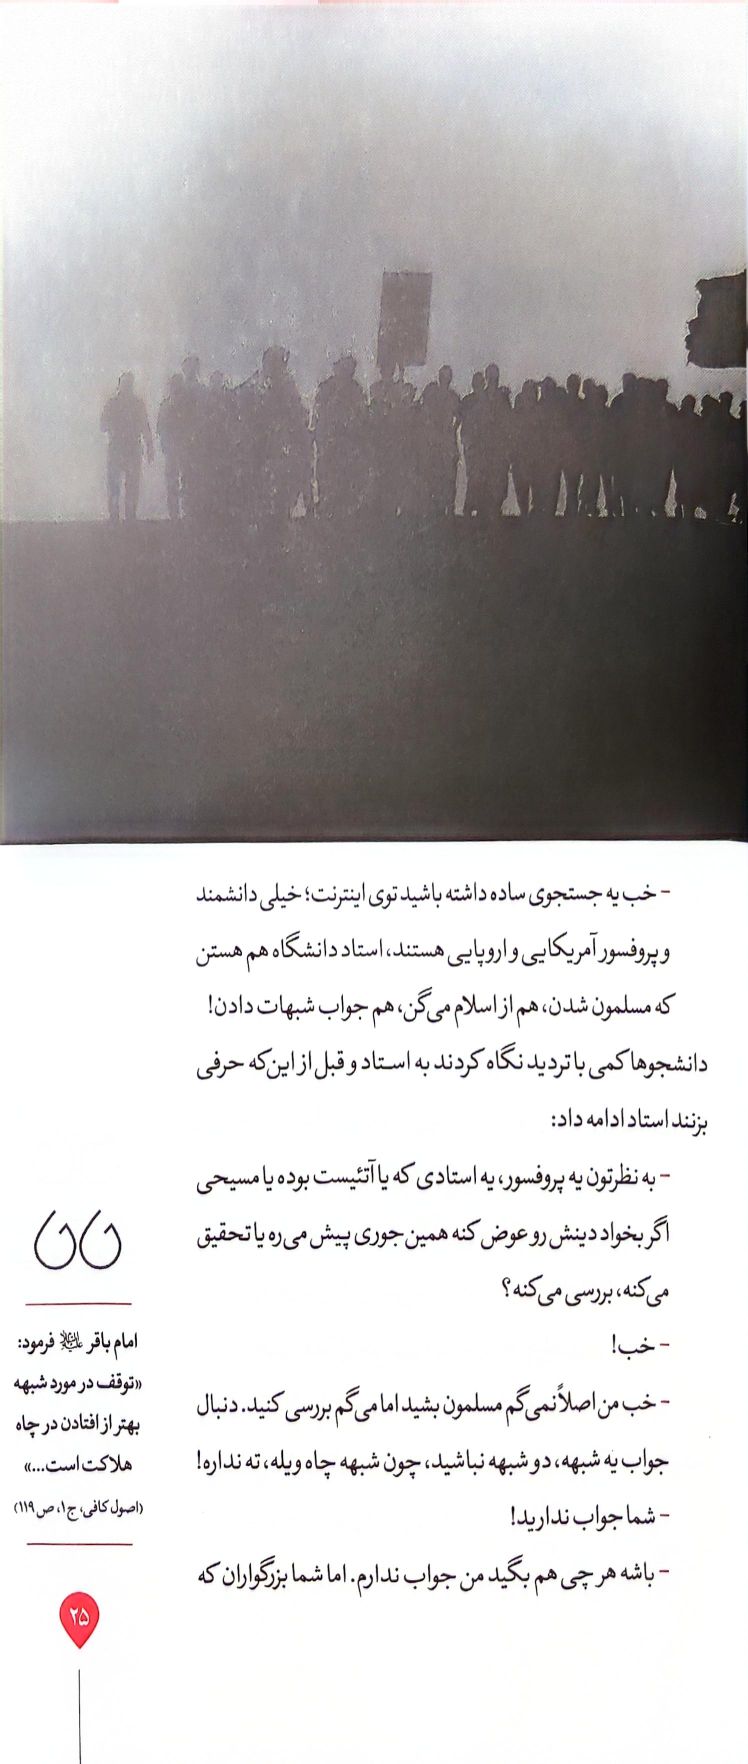 - خب یه جستجوی ساده داشته باشید توی اینترنت؛ خیلی دانشمند
و پروفسور آمریکایی و اروپایی هستند، استاد دانشگاه هم هستن
که مسلمون شدن، هم از اسلام می‌گن، هم جواب شبهات دادن!
دانشجوها کمی با تردید نگاه کردند به استاد و قبل از این‌که حرفی
بزنند استاد ادامه داد:
- به نظرتون یه پروفسور، یه استادی که یا آتئیست بوده یا مسیحی
اگر بخواد دینش رو عوض کنه همین جوری پیش می‌ره یا تحقیق
می‌کنه، بررسی می‌کنه؟
- خب!
- خب من اصلاً نمی‌گم مسلمون بشید اما می‌گم بررسی کنید. دنبال
جواب یه شبهه، دو شبهه نباشید، چون شبهه چاه ویله، ته نداره!
- شما جواب ندارید!
- باشه هر چی هم بگید من جواب ندارم. اما شما بزرگواران که
امام باقر علیه‌السلام فرمود:
«توقف در مورد شبهه
بهتر از افتادن در چاه
هلاکت است...»
(اصول کافی، ج۱، ص۱۱۹)
۲۵